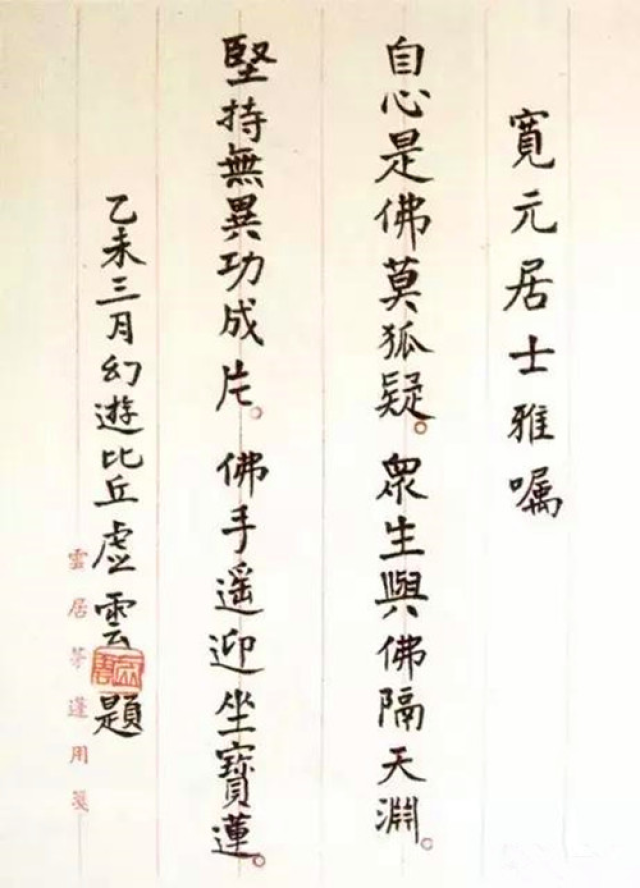 寬元居士雅嘱
自心是佛莫狐疑。眾生與佛隔天淵。
堅持無異功成片。佛手遥迎坐寶蓮。
乙未三月幻遊比丘虛雲題
雲居茅蓬用箋